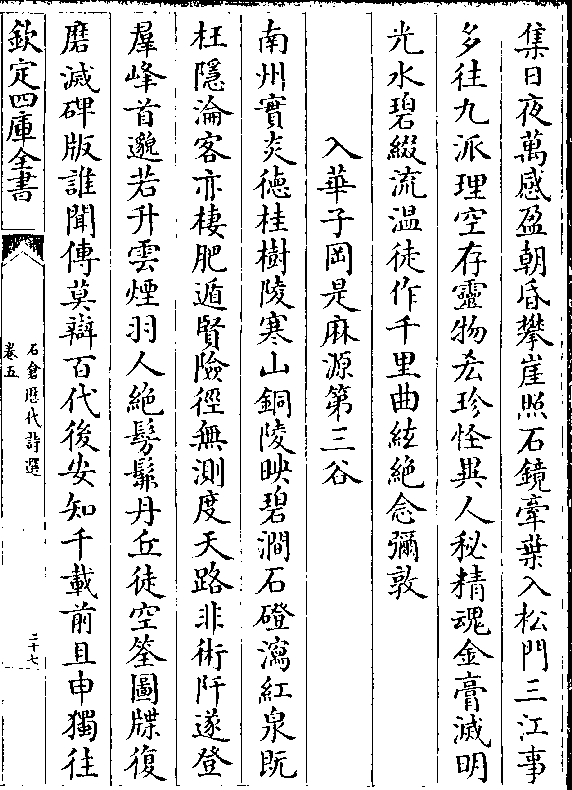 集日夜萬感盈朝昏攀崖照石鏡牽葉入松門三江事
多往九派理空存靈物𠫤珍怪異人秘精魂金膏滅明
光水碧綴流温徒作千里曲絃絶念彌敦
入華子岡是麻源第三谷
南州實炎徳桂樹陵寒山銅陵映碧澗石磴瀉紅泉既
枉隱淪客亦棲肥遁賢險徑無測度天路非術阡遂登
羣峰首邈若升雲煙羽人絶髣髴丹丘徒空筌圖牒復
磨滅碑版誰聞傳莫辯百代後安知千載前且申獨往
欽定四庫全書
石倉歴代詩選
卷五
二十七